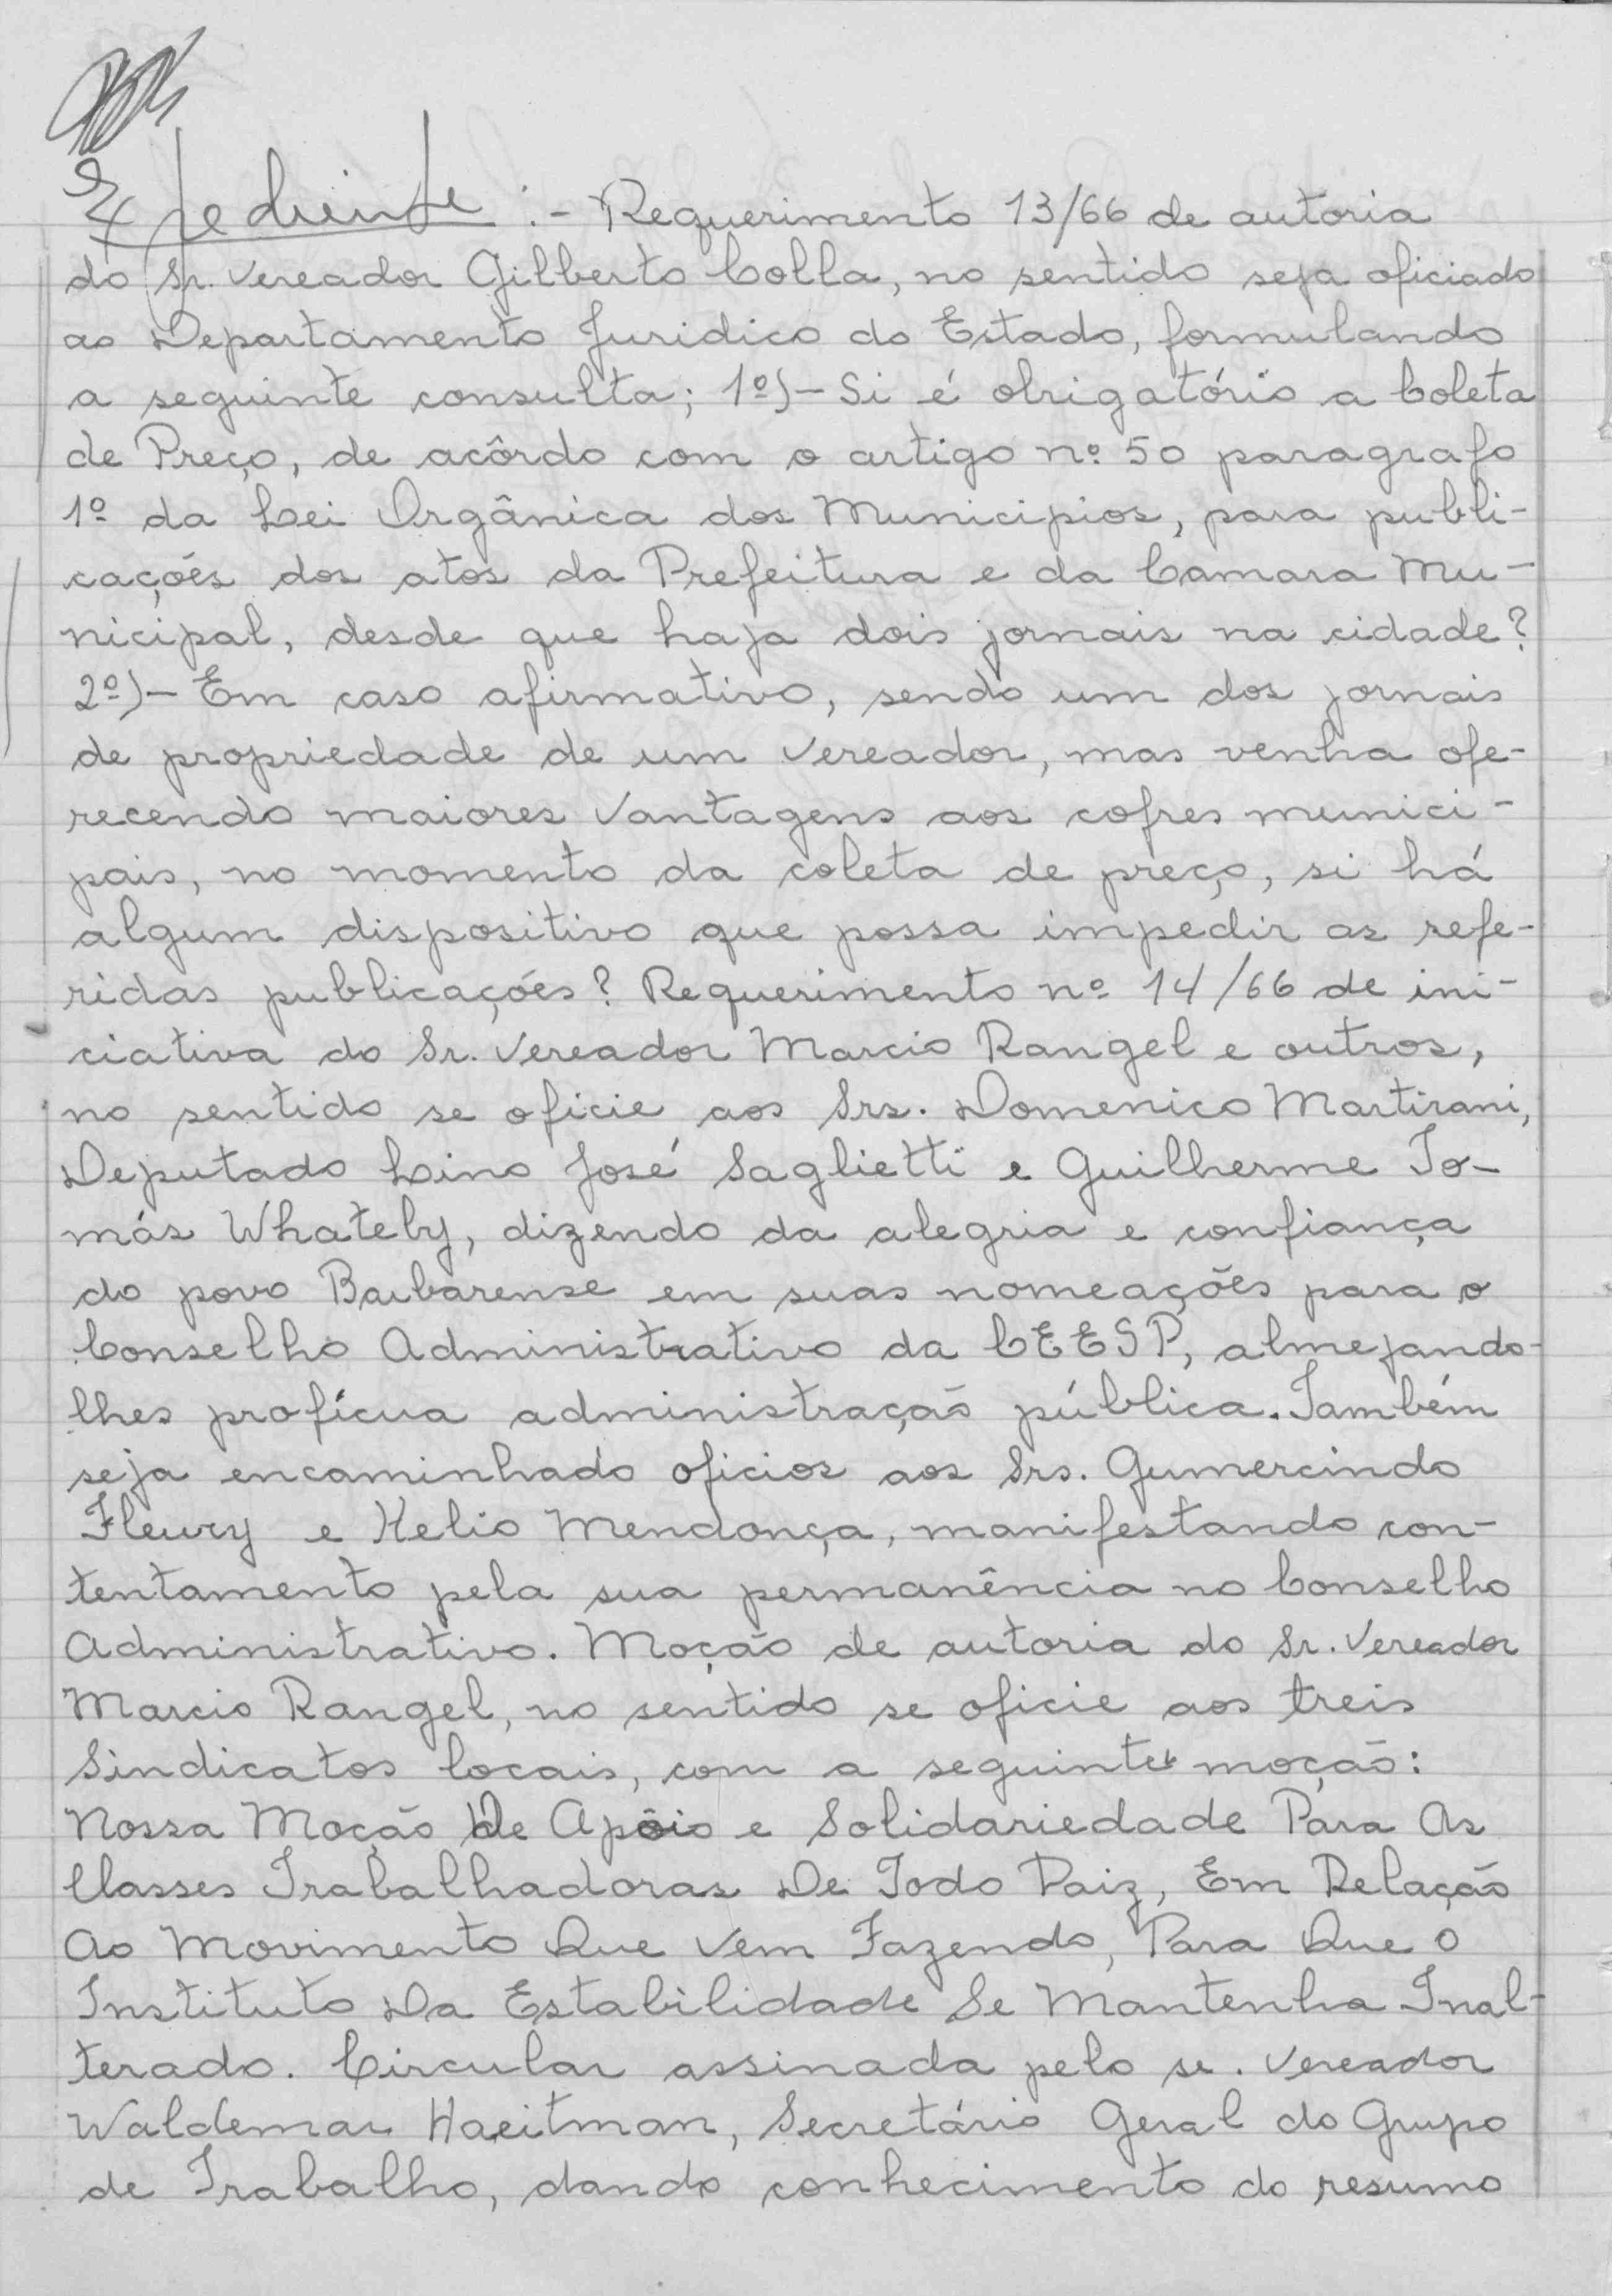 Expediente :- Requerimento 13/66 de autoria
do Sr. Vereador Gilberto Colla, no sentido seja oficiado
ao Departamento Juridico do Estado, formulando
a seguinte consulta; 1º)- Si é obrigatório a Coleta
de Preço, de acôrdo com o artigo nº 50 paragrafo
1º da Lei Orgânica dos Municipios, para publi-
cações dos atos da Prefeitura e da Camara Mu-
nicipal, desde que haja dois jornais na cidade?
2º)- Em caso afirmativo, sendo um dos jornais
de propriedade de um Vereador, mas venha ofe-
recendo maiores Vantagens aos cofres munici-
pais, no momento da coleta de preço, si há
algum dispositivo que possa impedir as refe-
ridas publicações? Requerimento nº 14/66 de ini-
ciativa do Sr. Vereador Marcio Rangel e outros,
no sentido se oficie aos Srs. Domenico Martirani,
Deputado Lino José Saglietti e Guilherme To-
más Whately, dizendo da alegria e confiança
do povo Barbarense em suas nomeações para o
Conselho Administrativo da CEESP, almejando-
lhes profícua administração pública. Também
seja encaminhado oficios aos Srs. Gumercindo
Fleury e Helio Mendonça, manifestando con-
tentamento pela sua permanência no Conselho
Administrativo. Moção de autoria do Sr. Vereador
Marcio Rangel, no sentido se oficie aos treis
Sindicatos locais, com a seguinte moção:
Nossa Moção De Apôio e Solidariedade Para As
Classes Trabalhadoras De Todo Paiz, Em Relação
Ao Movimento Que Vem Fazendo, Para Que O
Instituto Da Estabilidade Se Mantenha Inal-
terado. Circular assinada pelo sr. Vereador
Waldemar Haeitman, Secretário Geral do Grupo
de Trabalho, dando conhecimento do resumo